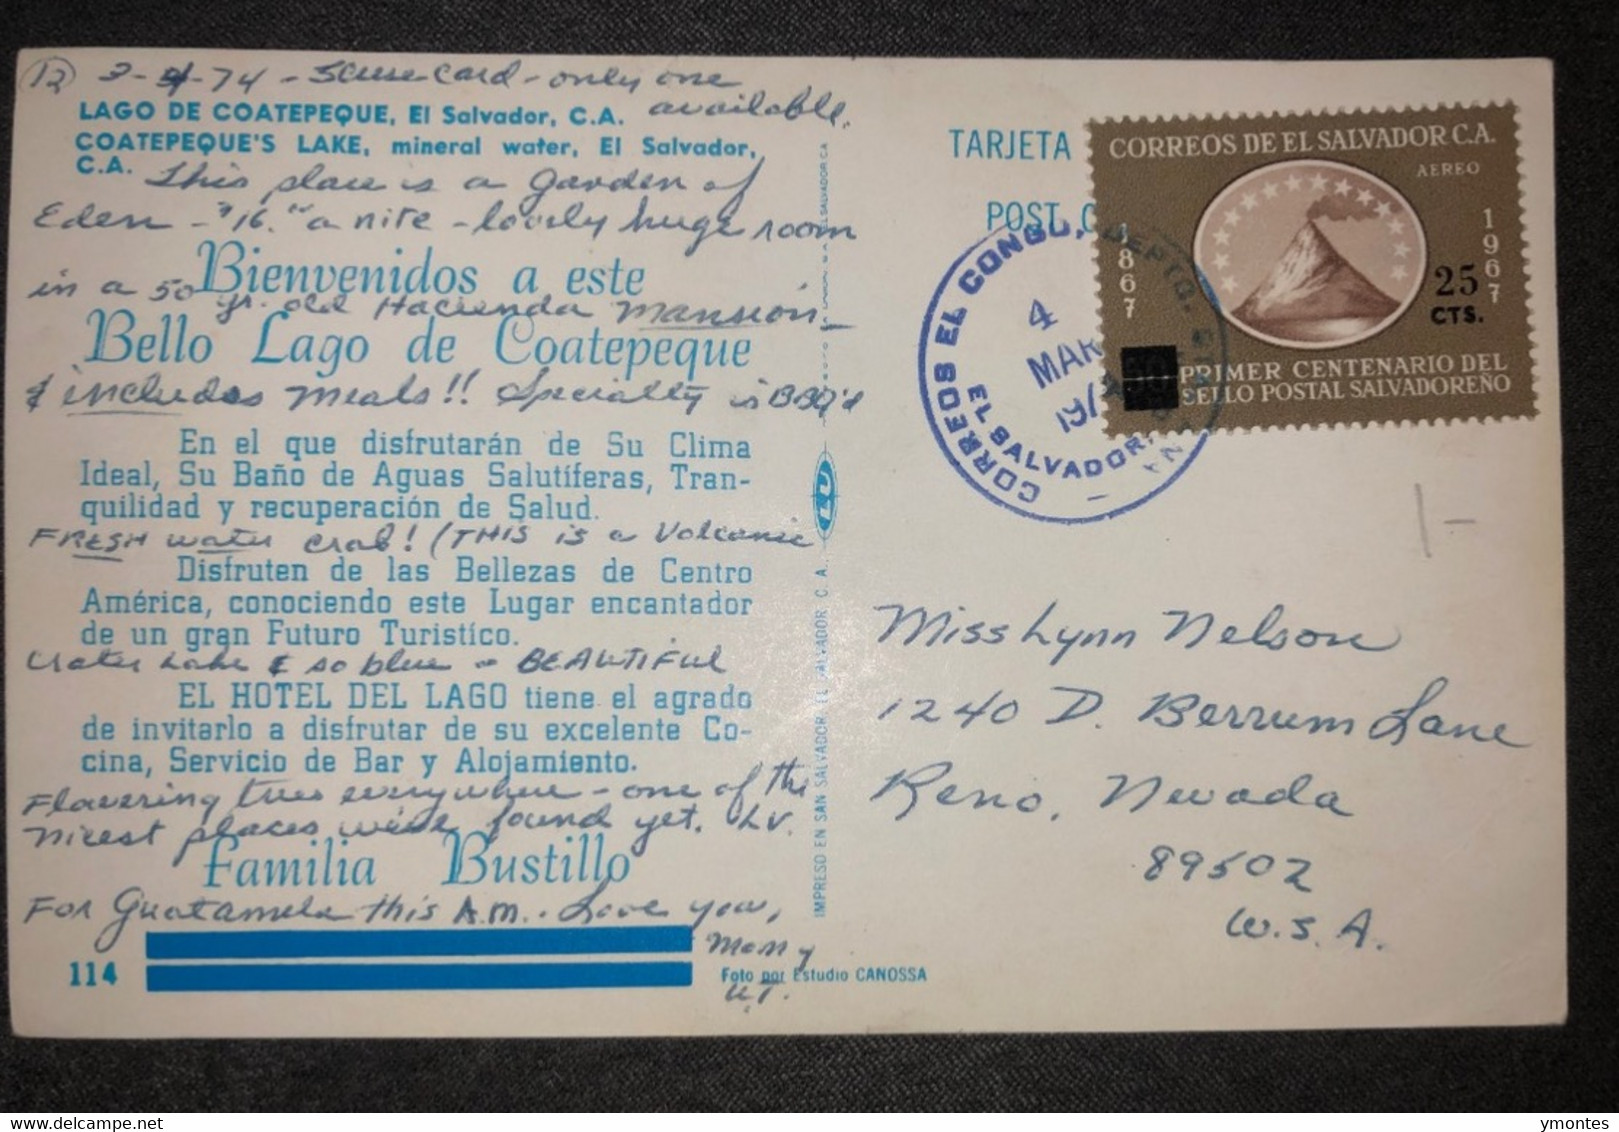 (12) 3-4-74 - Scuse card - only one
available.
LAGO DE COATEPEQUE, El Salvador, C.A.
COATEPEQUE'S LAKE, mineral water, El Salvador,
C.A.
This place is a Garden of
Eden - $16.00 a nite - lovely huge room
Bienvenidos a este
in a 50 yr. old Hacienda Mansion -
Bello Lago de Coatepeque
& includes meals!! Specialty is BBQ'd
En el que disfrutarán de Su Clima
Ideal, Su Baño de Aguas Salutíferas, Tran-
quilidad y recuperación de Salud.
FRESH water crab! (THIS is a Volcanic
Disfruten de las Bellezas de Centro
América, conociendo este Lugar encantador
de un gran Futuro Turistíco.
Crater Lake & so blue - BEAUTIFUL
EL HOTEL DEL LAGO tiene el agrado
de invitarlo a disfrutar de su excelente Co-
cina, Servicio de Bar y Alojamiento.
Flowering trees everywhere - one of the
nicest places we've found yet. Lv.
Familia Bustillo
For Guatamela this A.M. Love you,
114
Foto por Estudio CANOSSA
IMPRESO EN SAN SALVADOR, EL SALVADOR C. A.
LU
TARJETA
POST C
CORREOS DE EL SALVADOR C.A.
AEREO
1867
1967
25
CTS.
PRIMER CENTENARIO DEL
SELLO POSTAL SALVADOREÑO
CORREOS EL CONGO, DEPTO. DE
4
MAR
197
EL SALVADOR
1-
Miss Lynn Nelson
1240 D. Berrum Lane
Reno, Nevada
89502
U.S.A.
ymontes